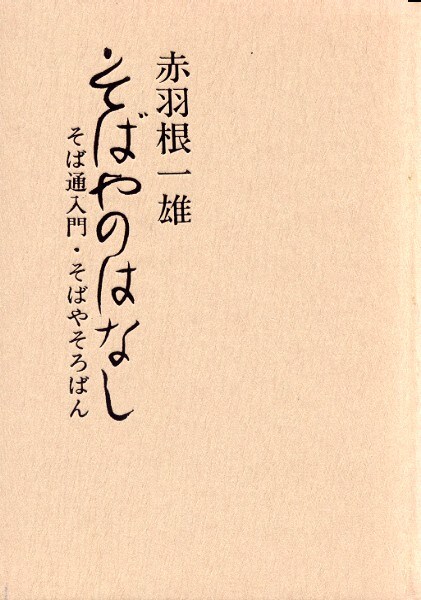 赤羽根一雄
そばやのはなし
そば通入門・そばやそろばん